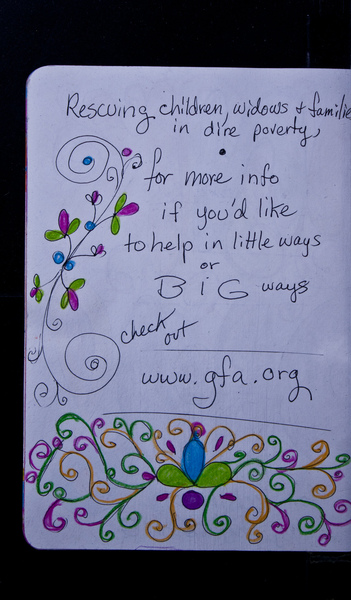 Rescuing children, widows & families
in dire poverty,
for more info
if you'd like
to help in little ways
or
BiG ways
check out
www.gfa.org